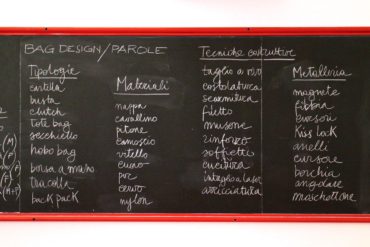 BAG DESIGN/PAROLE
Tipologie
cartella
busta
clutch
tote bag
secchiello
hobo bag
borsa a mano
tracolla
back pack
Materiali
nappa
cavallino
pitone
camoscio
vitello
cuoio
pvc
cervo
nylon
Tecniche costruttive
taglio a vivo
costolatura
scarnitura
filetto
rinforzo
soffietti
cucitura
intaglio a laser
arricciatura
Metalleria
magnete
fibbia
Kiss lock
anelli
cursore
borchia
moschettone